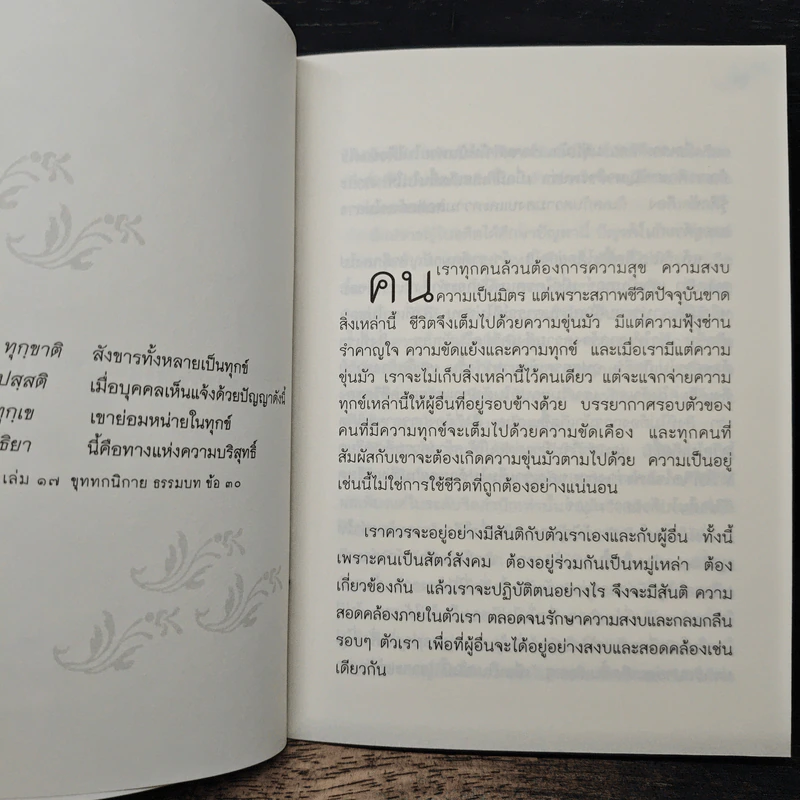 ทุกฺขาติ สังขารทั้งหลายเป็นทุกข์
ปสฺสติ เมื่อบุคคลเห็นแจ้งด้วยปัญญาดังนี้
ทุกฺเข เขาย่อมหน่ายในทุกข์
ธิยา นี้คือทางแห่งความบริสุทธิ์
เล่ม ๑๗ ขุททกนิกาย ธรรมบท ข้อ ๓๐
คนเราทุกคนล้วนต้องการความสุข ความสงบ
ความเป็นมิตร แต่เพราะสภาพชีวิตปัจจุบันขาด
สิ่งเหล่านี้ ชีวิตจึงเต็มไปด้วยความขุ่นมัว มีแต่ความฟุ้งซ่าน
รำคาญใจ ความขัดแย้งและความทุกข์ และเมื่อเรามีแต่ความ
ขุ่นมัว เราจะไม่เก็บสิ่งเหล่านี้ไว้คนเดียว แต่จะแจกจ่ายความ
ทุกข์เหล่านี้ให้ผู้อื่นที่อยู่รอบข้างด้วย บรรยากาศรอบตัวของ
คนที่มีความทุกข์จะเต็มไปด้วยความขัดเคือง และทุกคนที่
สัมผัสกับเขาจะต้องเกิดความขุ่นมัวตามไปด้วย ความเป็นอยู่
เช่นนี้ไม่ใช่การใช้ชีวิตที่ถูกต้องอย่างแน่นอน
เราควรจะอยู่อย่างมีสันติกับตัวเราเองและกับผู้อื่น ทั้งนี้
เพราะคนเป็นสัตว์สังคม ต้องอยู่ร่วมกันเป็นหมู่เหล่า ต้อง
เกี่ยวข้องกัน แล้วเราจะปฏิบัติตนอย่างไร จึงจะมีสันติ ความ
สอดคล้องภายในตัวเรา ตลอดจนรักษาความสงบและกลมกลืน
รอบๆ ตัวเรา เพื่อที่ผู้อื่นจะได้อยู่อย่างสงบและสอดคล้องเช่น
เดียวกัน